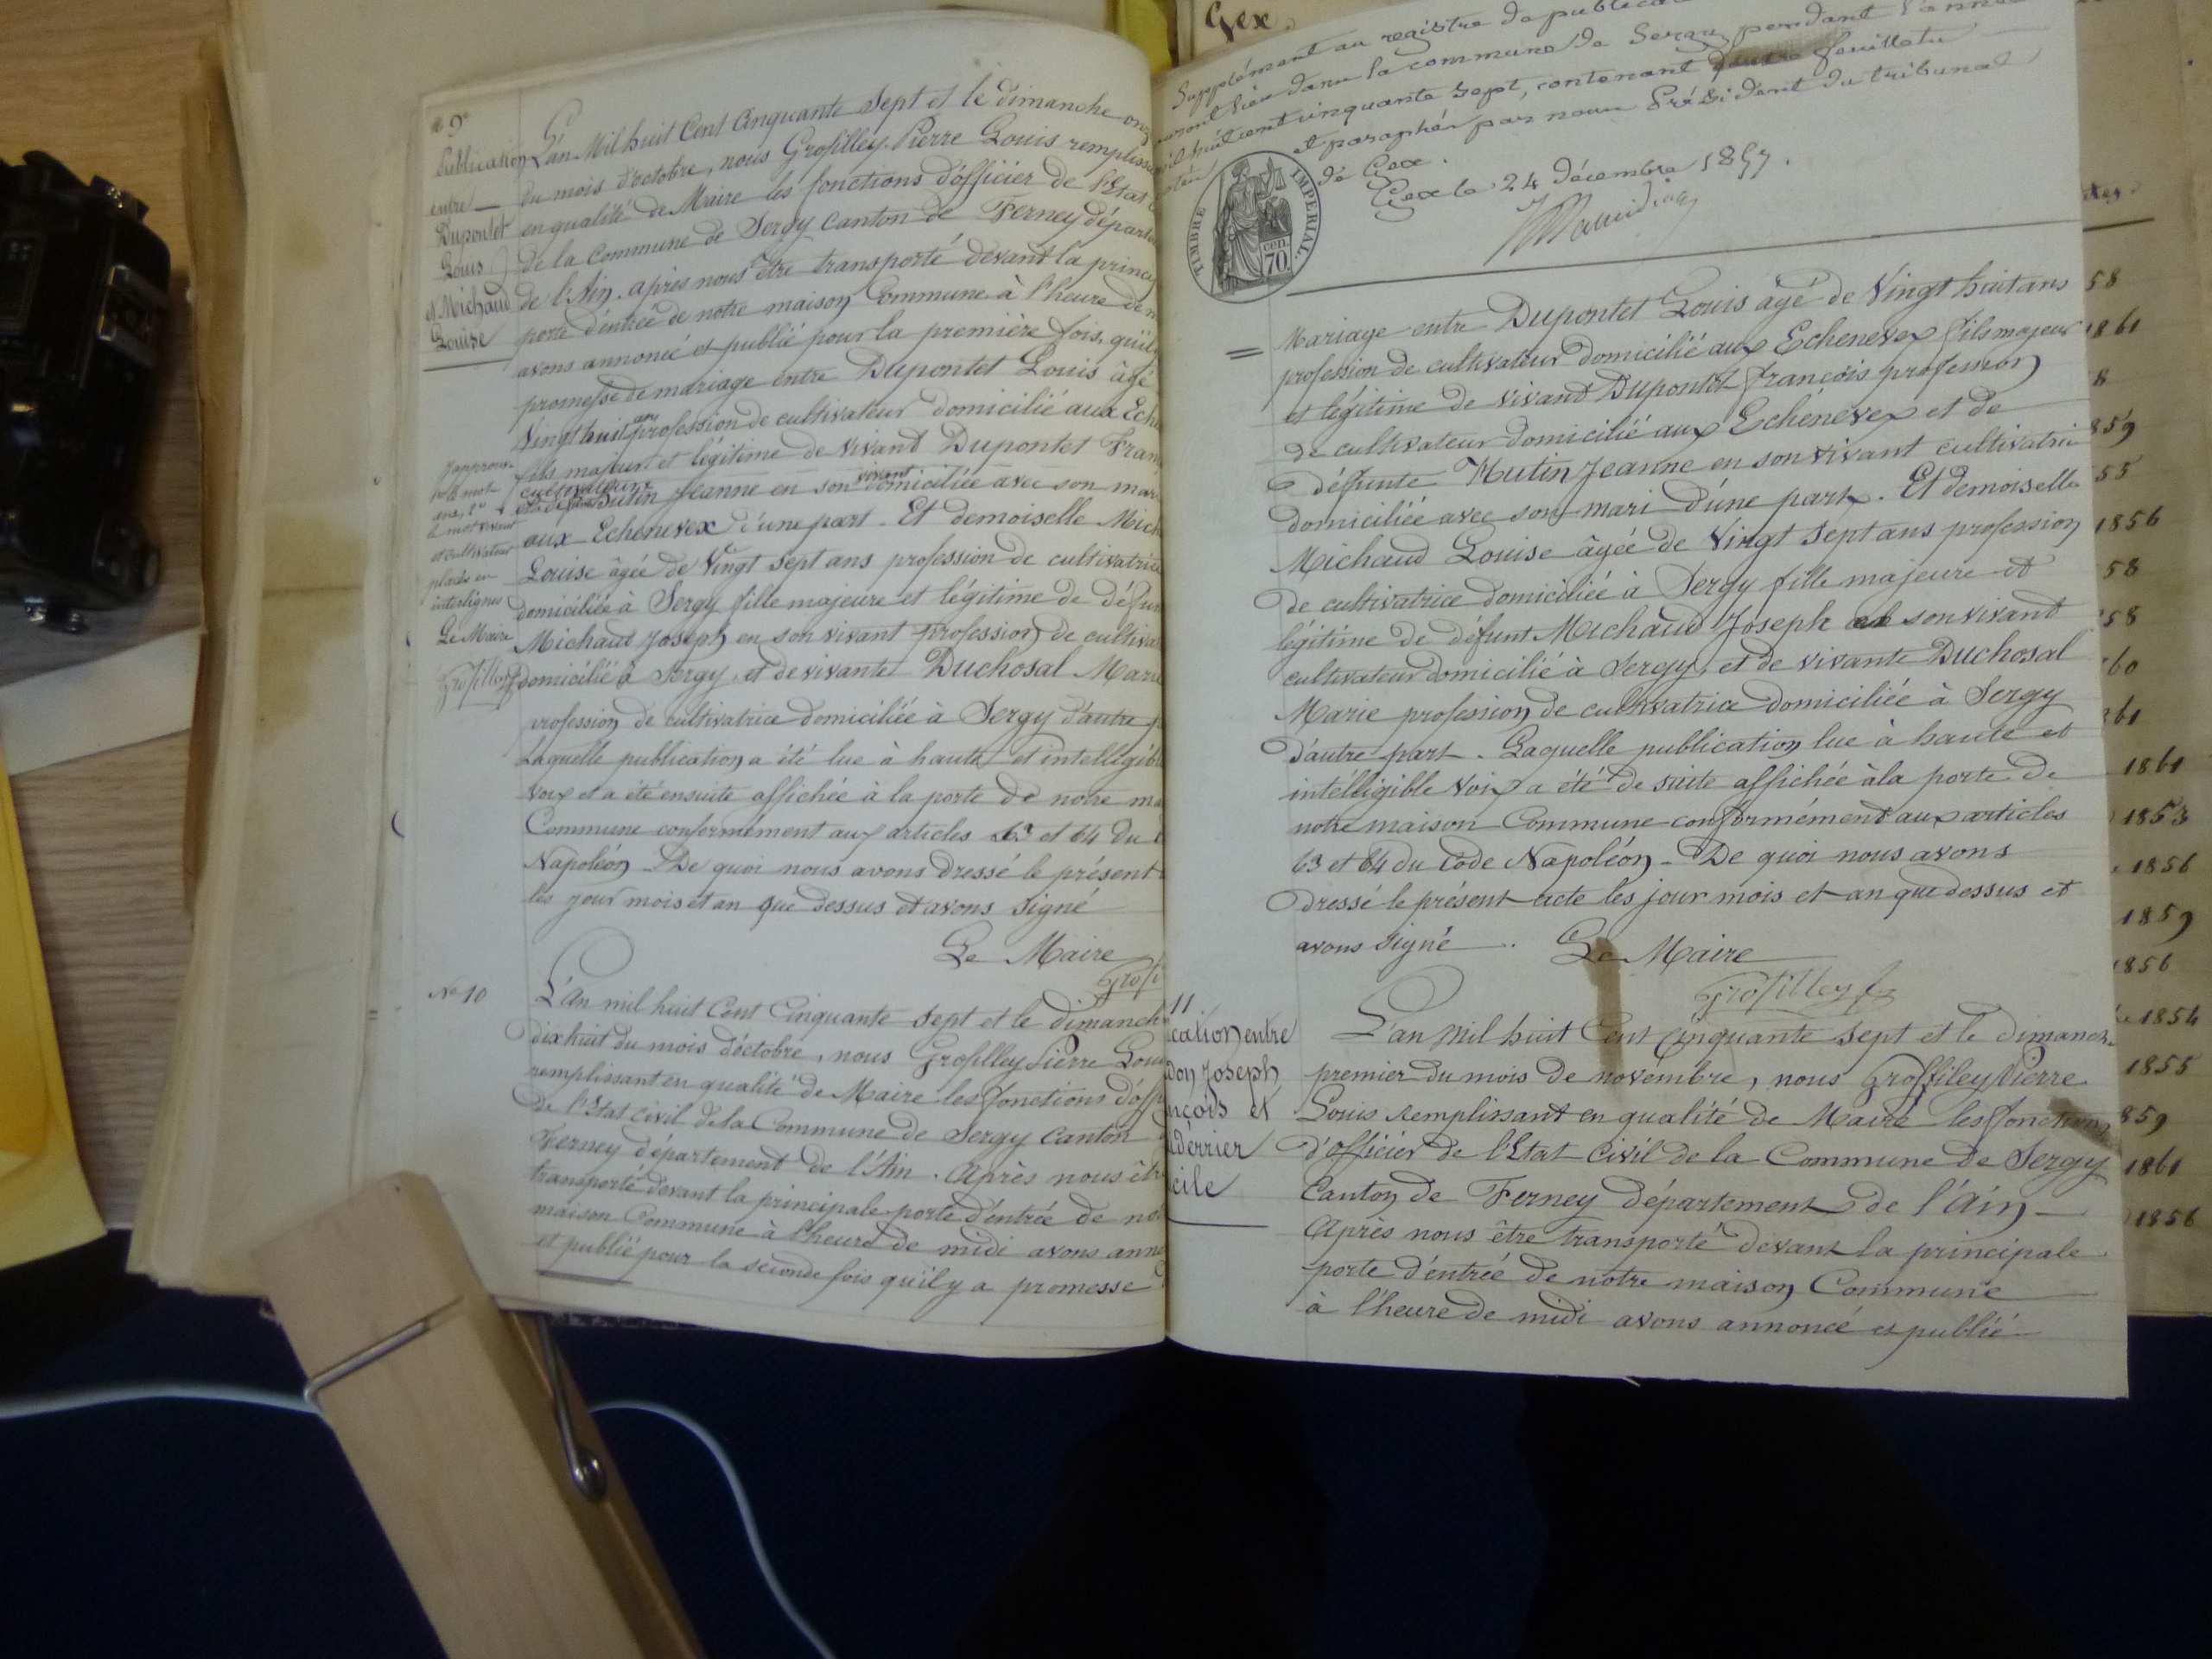 9e
Publication
entre
Dupontet
Louis
et Michaud
Louise
L'an Mil huit Cent Cinquante Sept et le dimanche onz
du mois d'octobre, nous Grosfilley Pierre Louis remplissa
en qualité de Maire les fonctions d'officier de l'Etat
de la Commune de Sergy Canton de Ferney départe
de l'Ain. après nous être transporté devant la princi
porte d'entrée de notre maison Commune à l'heure de m
avons annoncé et publié pour la première fois, qu'il
promesse de mariage entre Dupontet Louis âgé
Vingt huit ans profession de cultivateur domicilié aux Eche
fils majeur et légitime de vivant Dupontet Fran
cultivateur
Jeanne en son vivant domiciliée avec son mar
aux Echenevex d'une part. Et demoiselle Mich
Louise âgée de Vingt sept ans profession de cultivatrice
domiciliée à Sergy fille majeure et légitime de défun
Michaud Joseph en son vivant profession de cultivat
domicilié à Sergy, et de vivante Duchosal Marie
profession de cultivatrice domiciliée à Sergy d'autre p
Laquelle publication a été lue à haute et intelligibl
Voix et a été ensuite affichée à la porte de notre ma
Commune conformément aux articles 63 et 64 du
Napoléon. De quoi nous avons dressé le présent
les jour mois et an que dessus et avons signé
Le Maire
Grosf
J'approuve
le mot
ans,
le mot vivant
et cultivateur
placés en
interlignes
Le Maire
Grosfilley
No 10
L'an mil huit Cent Cinquante Sept et le dimanch
dix huit du mois d'octobre, nous Grosfilley Pierre Loui
remplissant en qualité de Maire les fonctions d'off
de l'Etat civil de la Commune de Sergy Canton d
Ferney département de l'Ain. Après nous êtr
transporté devant la principale porte d'entrée de no
maison Commune à l'heure de midi avons anno
et publié pour la seconde fois qu'il y a promesse
Gex.
Supplément au registre de publica
auront lieu dans la commune de Sergy pendant l'anné
mil huit cent cinquante sept, contenant feuillets
et paraphés par nous Président du tribunal
de Gex.
Gex le 24 décembre 1857.
TIMBRE IMPERIAL.
70 cen.
Mariage entre Dupontet Louis âgé de Vingt huit ans
profession de cultivateur domicilié aux Echenevex fils majeur
et légitime de vivant Dupontet François profession
de cultivateur domicilié aux Echénevex et de
défunte Mutin Jeanne en son vivant cultivatri
domiciliée avec son mari d'une part. Et demoiselle
Michaud Louise âgée de Vingt Sept ans profession
de cultivatrice domiciliée à Sergy fille majeure et
légitime de défunt Michaud Joseph en son vivant
cultivateur domicilié à Sergy, et de vivante Duchosal
Marie profession de cultivatrice domiciliée à Sergy
d'autre part. Laquelle publication lue à haute et
intélligible Voix a été de suite affichée à la porte de
notre maison Commune conformément aux articles
63 et 64 du Code Napoléon. De quoi nous avons
dressé le présent acte les jour mois et an que dessus et
avons signé. Le Maire
Grosfilley
11
cation entre
don Joseph
nçois et
derrier
cile
L'an Mil huit Cent Cinquante Sept et le dimanche
premier du mois de novembre, nous Grosfiley Pierre
Louis remplissant en qualité de Maire les fonctions
d'officier de l'Etat Civil de la Commune de Sergy
Canton de Ferney département de l'Ain
Après nous être transporté devant la principale
porte d'entrée de notre maison Commune
à l'heure de midi avons annoncé et publié
58
1861
8
859
55
1856
58
58
60
61
1861
1853
1856
1859
1856
1854
1855
859
1861
1856